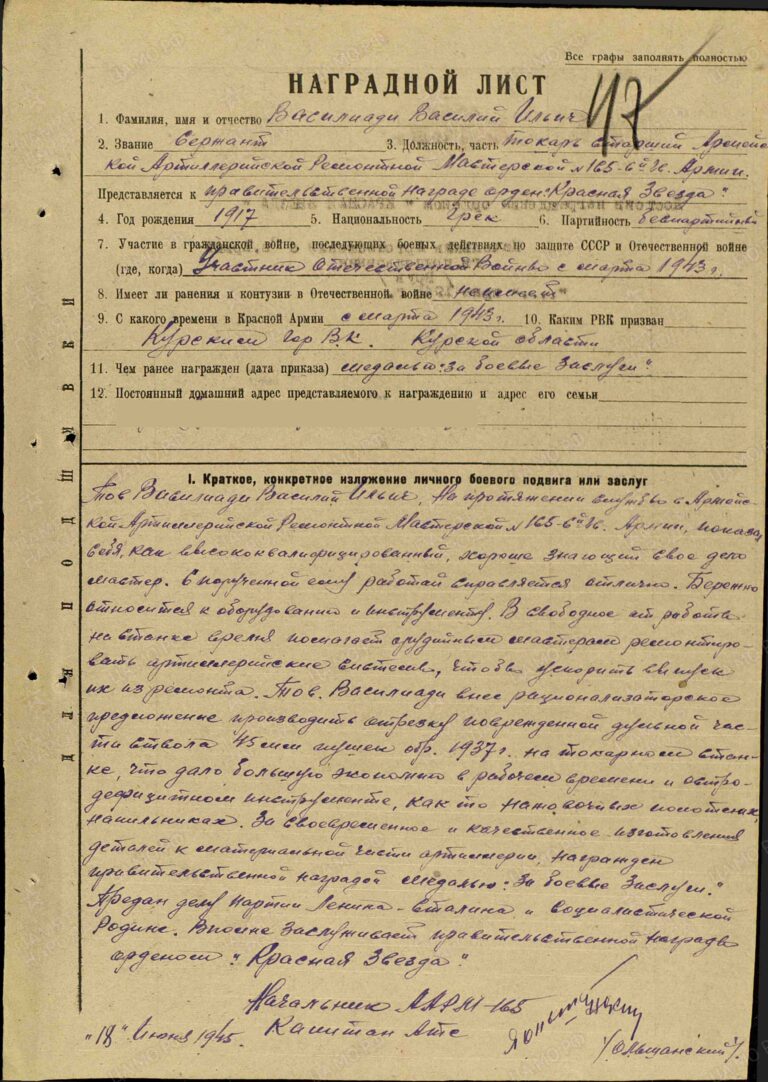 Все графы заполнять полностью
47
НАГРАДНОЙ ЛИСТ
1. Фамилия, имя и отчество Василиади Василий Ильич
2. Звание Сержант 3. Должность, часть Токарь старший Армейс
кой Артиллерийской Ремонтной Мастерской №165-6й Гв. Армии.
Представляется к правительственной награде орден "Красная Звезда"
4. Год рождения 1917 5. Национальность Грек 6. Партийность беспартийный
7. Участие в гражданской войне, последующих боевых действиях по защите СССР и Отечественной войне
(где, когда) Участник Отечественной Войны с марта 1943 г.
8. Имеет ли ранения и контузии в Отечественной войне не имеет
9. С какого времени в Красной Армии с марта 1943 г. 10. Каким РВК призван
Курским Гор В.К. Курской области
11. Чем ранее награжден (дата приказа) медалью "За боевые Заслуги"
12. Постоянный домашний адрес представляемого к награждению и адрес его семьи
ДЛЯ ПОДШИВКИ
I. Краткое, конкретное изложение личного боевого подвига или заслуг
Тов Василиади Василий Ильич, на протяжении службы в Армейс-
кой Артиллерийской Ремонтной Мастерской №165-6й Гв. Армии, показал
себя, как высококвалифицированный, хорошо знающий свое дело
мастер. С порученной ему работай справляется отлично. Бережно
относится к оборудованию и инструменту. В свободное от работы
на станке время помогает орудийным мастерам ремонтиро-
вать артиллерийские системы, чтобы ускорить выпуск
их из ремонта. Тов. Василиади внес рационализаторское
предложение производить отрезку поврежденной дульной час-
ти ствола 45 мм пушек обр. 1937 г. на токарном стан-
ке, что дало большую экономию в рабочем времени и остро-
дефицитном инструменте, как то ножовочных полотенах,
напильниках. За своевременное и качественное изготовление
деталей к материальной части артиллерии, награжден
правительственной наградой медалью "За боевые Заслуги."
Предан делу партии Ленина - Сталина и социалистической
Родине. Вполне заслуживает правительственной награды
орденом "Красная Звезда".
Начальник ААРМ-165
Капитан Атс
/Ольшанский/.
"18" Июня 1945.